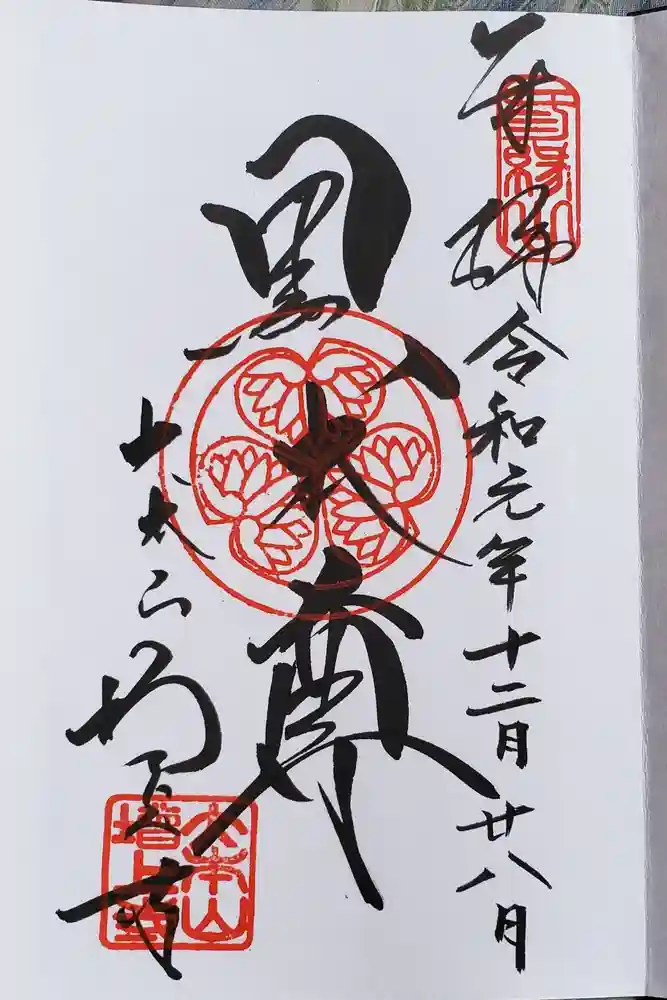 奉拝 令和元年十二月廿八日
黒本尊
大本山 増上寺
大本山
増上寺